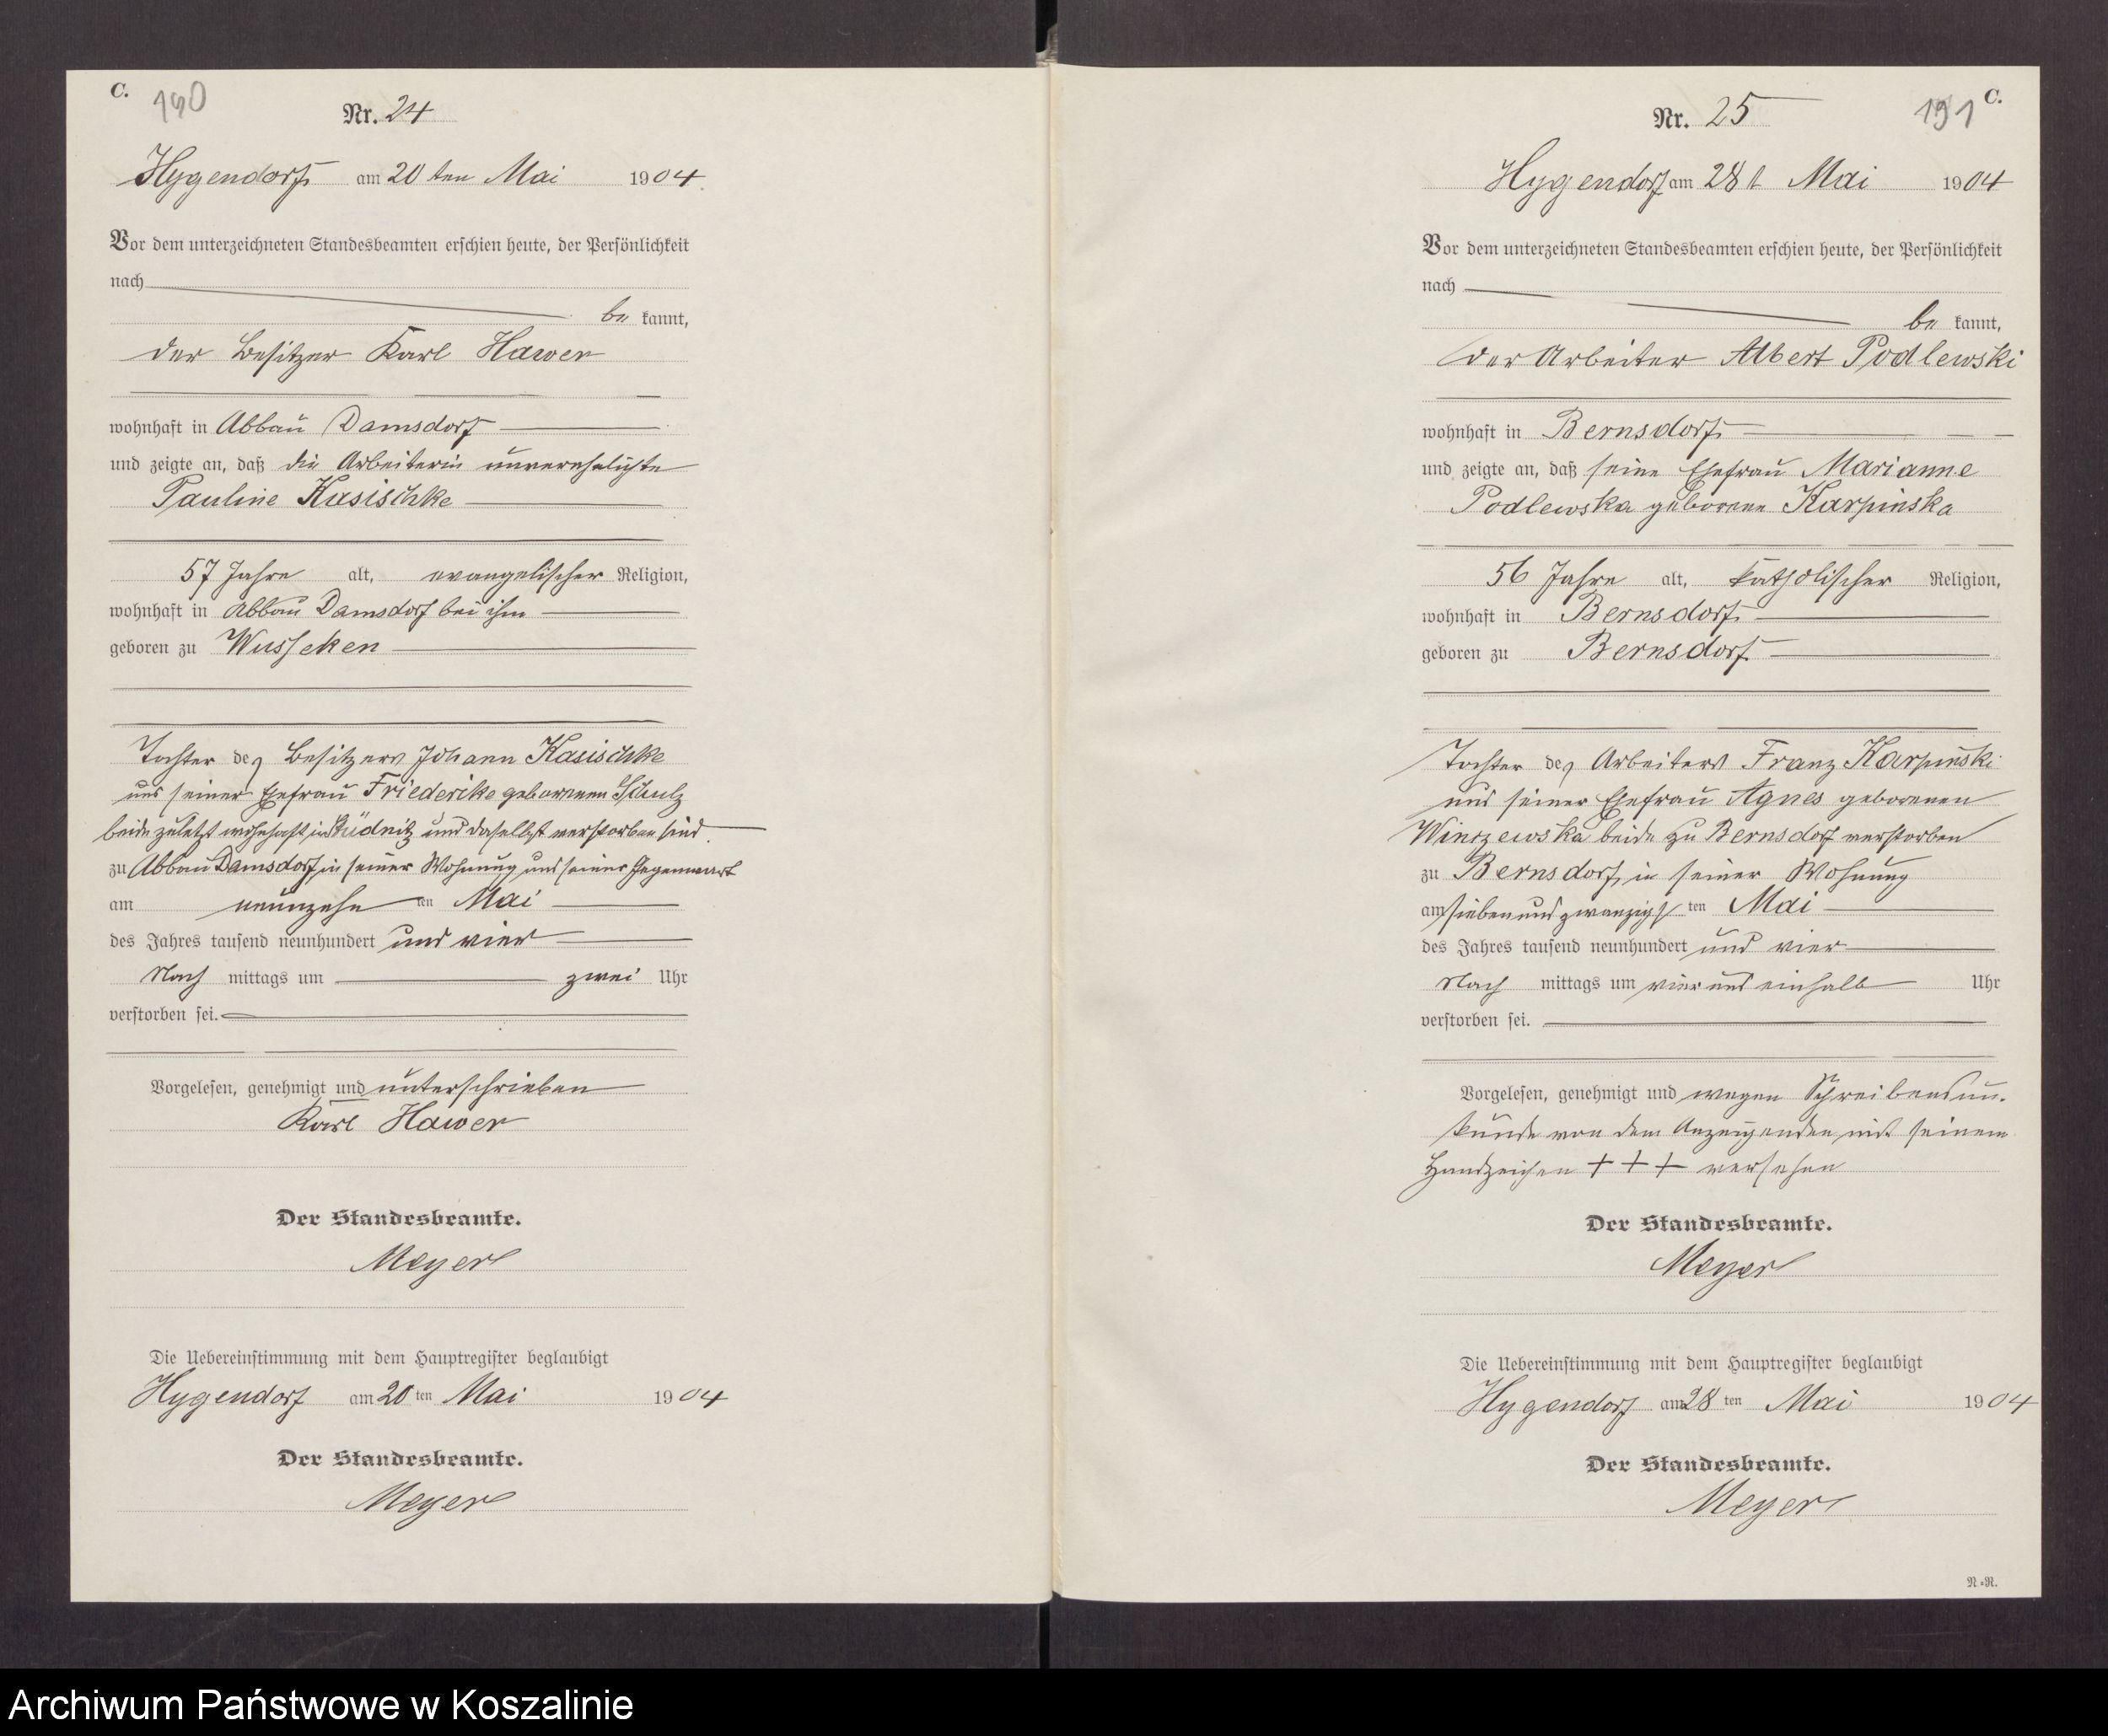 C.
190
Nr. 24
Hygendorf am 20 ten Mai 1904.
Vor dem unterzeichneten Standesbeamten erschien heute, der Persönlichkeit
nach
be kannt,
der Besitzer Karl Hawer
wohnhaft in Abbau Damsdorf
und zeigte an, daß die Arbeiterin unverehelichte
Pauline Kasischke
57 Jahre alt, evangelischer Religion,
wohnhaft in Abbau Damsdorf bei ihm
geboren zu Wusseken
Tochter des Besitzers Johann Kasischke
und seiner Ehefrau Friederike geborenen Schulz
beide zuletzt wohnhaft in und daselbst verstorben sind
zu Abbau Damsdorf, in seiner Wohnung und seiner Gegenwart
am neunzehn ten Mai
des Jahres tausend neunhundert und vier
Nach mittags um zwei Uhr
verstorben sei.
Vorgelesen, genehmigt und unterschrieben
Karl Hawer
Der Standesbeamte.
Meyer
Die Uebereinstimmung mit dem Hauptregister beglaubigt
Hygendorf am 20 ten Mai 1904
Der Standesbeamte.
Meyer
C.
191
Nr. 25
Hygendorf am 28 t Mai 1904
Vor dem unterzeichneten Standesbeamten erschien heute, der Persönlichkeit
nach
be kannt,
der Arbeiter Albert Podlewski
wohnhaft in Bernsdorf
und zeigte an, daß seine Ehefrau Marianne
Podlewska geborene Karpinska
56 Jahre alt, katholischer Religion,
wohnhaft in Bernsdorf
geboren zu Bernsdorf
Tochter des Arbeiters Franz Karpinski
und seiner Ehefrau Agnes geborenen
Winczewska beide zu Bernsdorf verstorben
zu Bernsdorf, in seiner Wohnung
am siebenundzwanzigs ten Mai
des Jahres tausend neunhundert und vier
Nach mittags um vier und einhalb Uhr
verstorben sei.
Vorgelesen, genehmigt und wegen Schreibensun-
kunde von dem Anzeigenden mit seinem
Handzeichen + + + versehen
Der Standesbeamte.
Meyer
Die Uebereinstimmung mit dem Hauptregister beglaubigt
Hygendorf am 28 ten Mai 1904
Der Standesbeamte.
Meyer
N.-R.
Archiwum Państwowe w Koszalinie